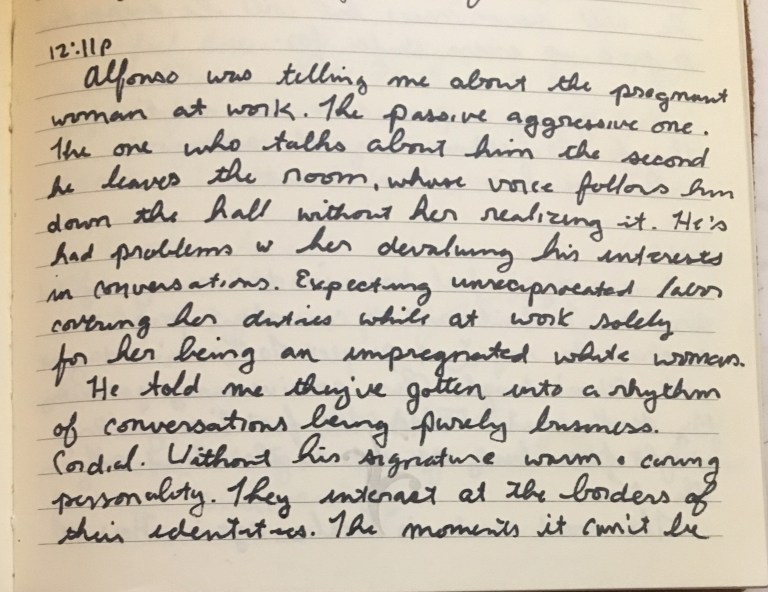 12:11P
Alfonso was telling me about the pregnant
woman at work. The passive aggressive one.
The one who talks about him the second
he leaves the room, whose voice follows him
down the hall without her realizing it. He's
had problems w her devaluing his interests
in conversations. Expecting unreciprocated labor
covering her duties while at work solely
for her being an impregnated white woman.
He told me they've gotten into a rhythm
of conversations being purely business.
Cordial. Without his signature warm + caring
personality. They interact at the borders of
their identities. The moments it can't be